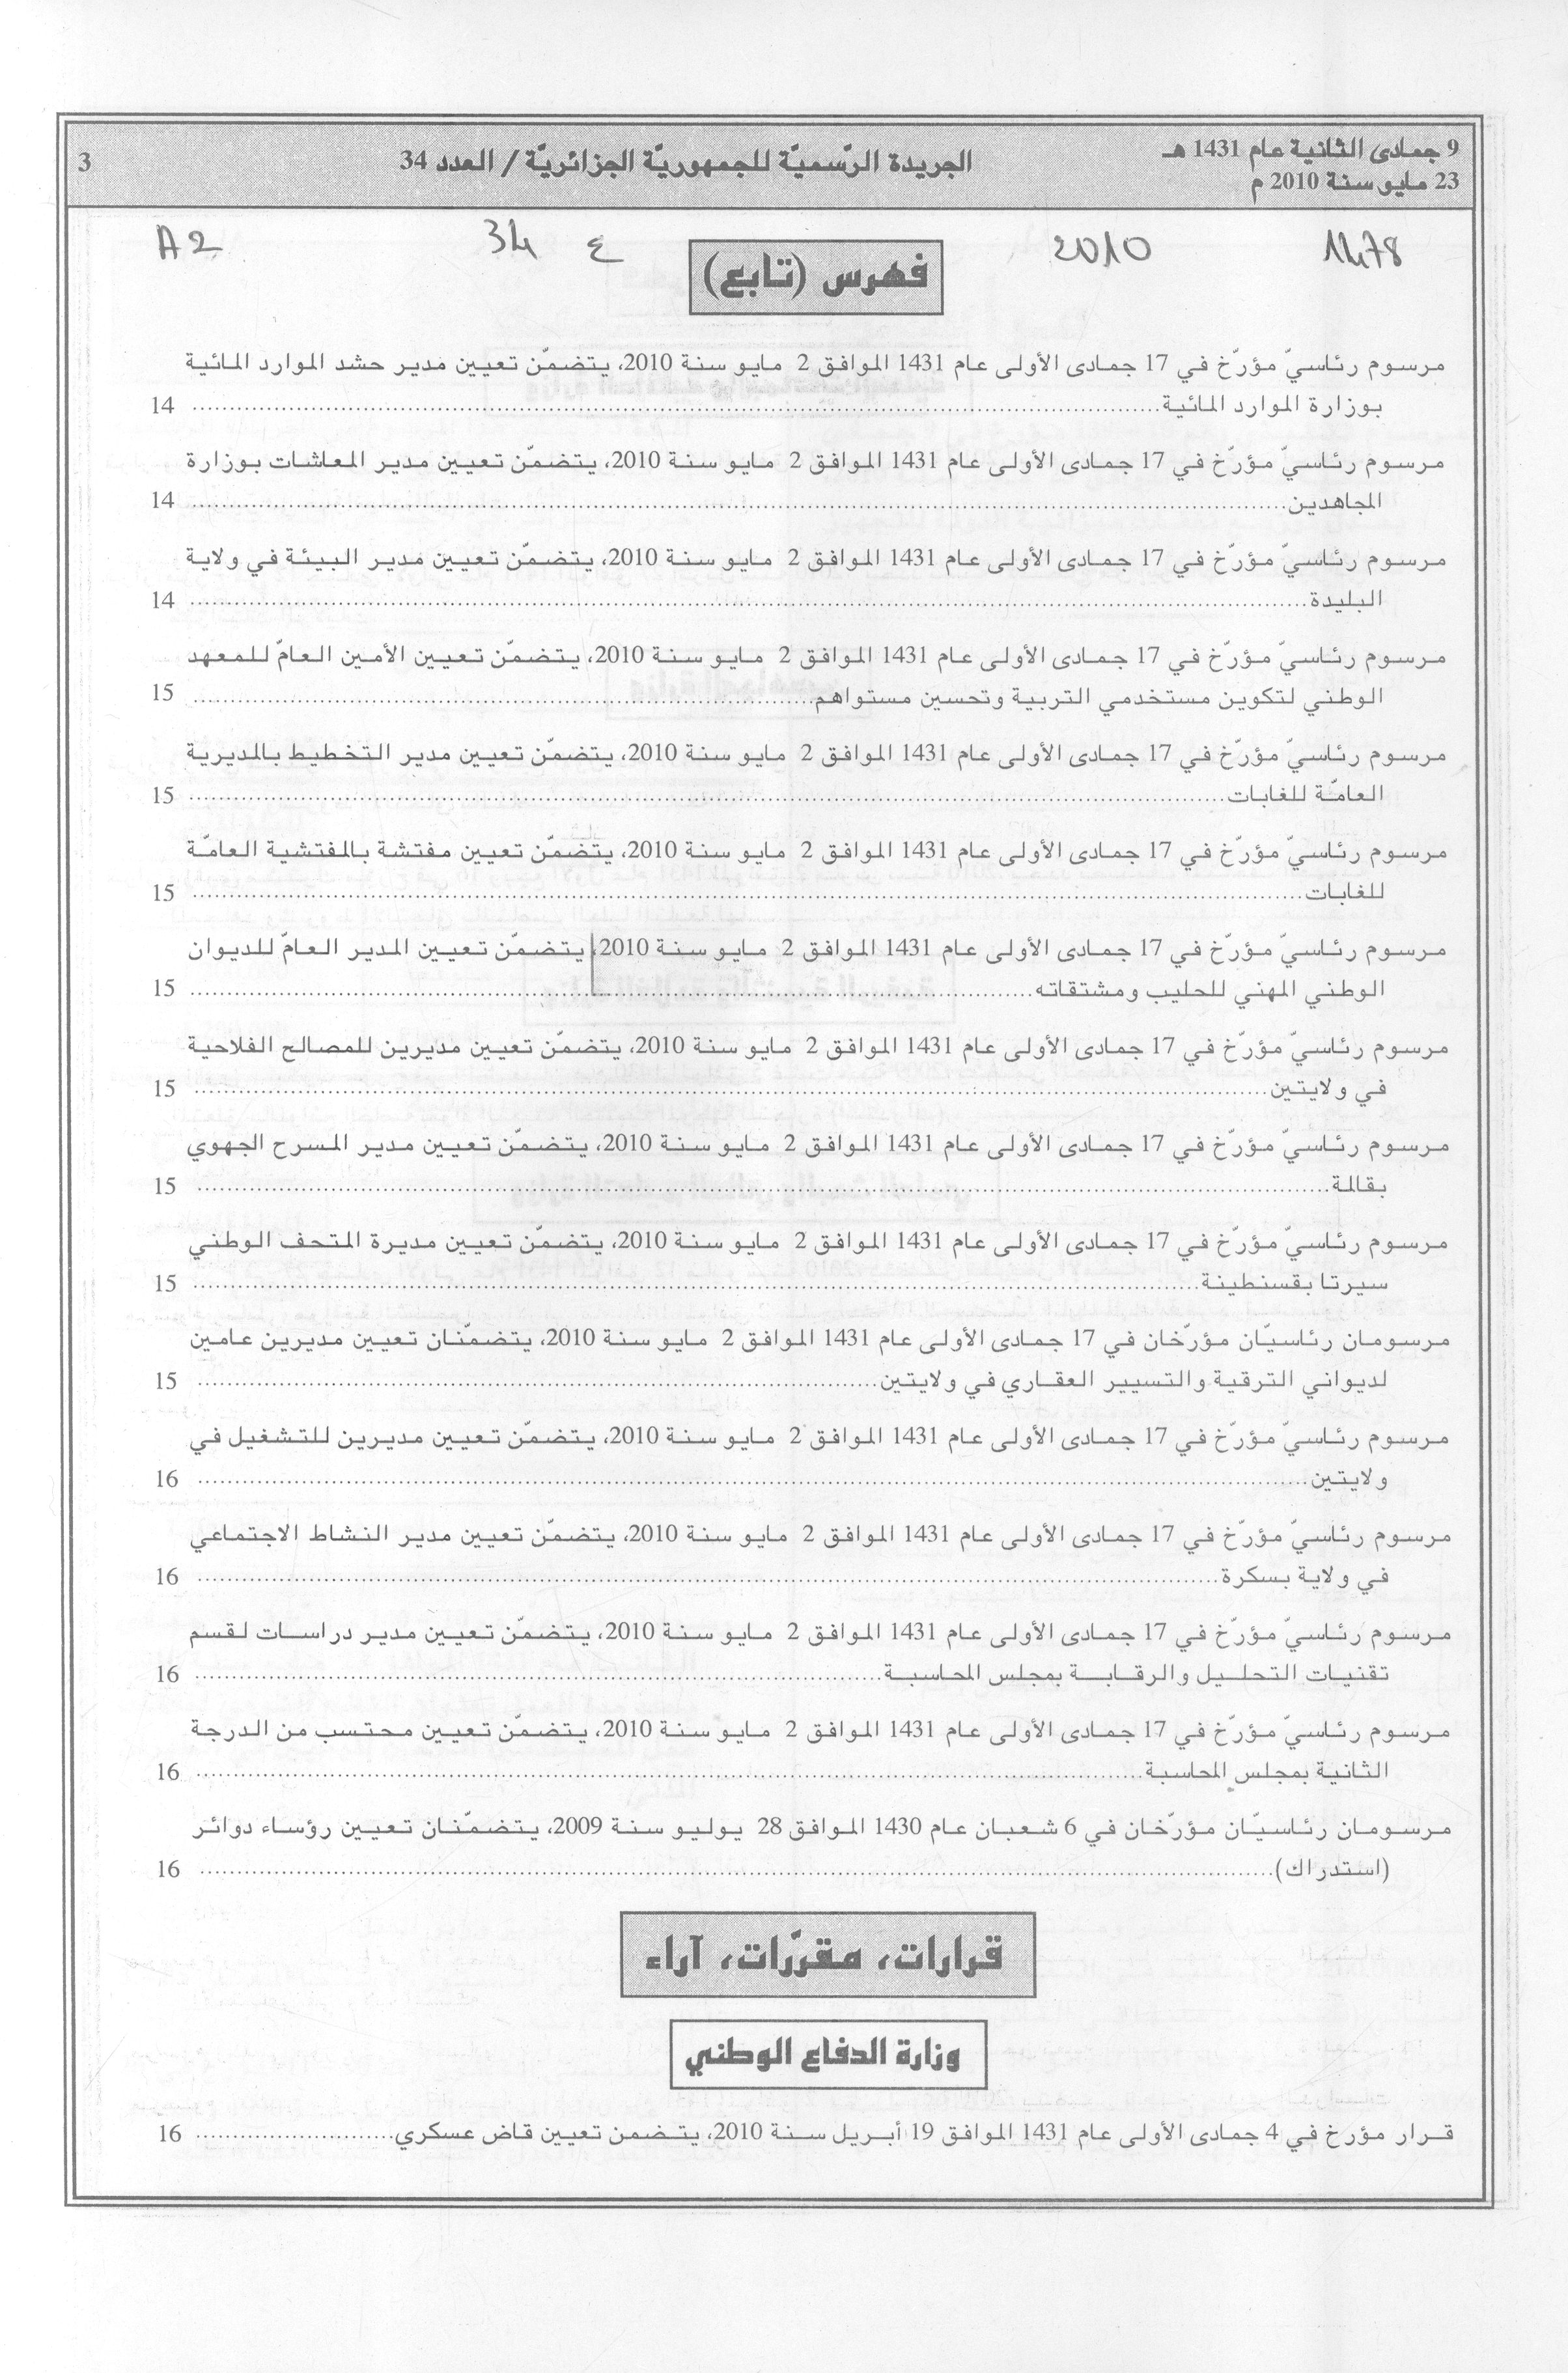 9 جمادى الثانية عام 1431 هـ
23 مايو سنة 2010 م
الجريدة الرّسميّة للجمهوريّة الجزائريّة / العدد 34
3
1478 2010 ع 34 A2
فهرس (تابع)
مرسوم رئاسيّ مؤرّخ في 17 جمادى الأولى عام 1431 الموافق 2 مايو سنة 2010، يتضمّن تعيين مدير حشد الموارد المائية
بوزارة الموارد المائية........ 14
مرسوم رئاسيّ مؤرّخ في 17 جمادى الأولى عام 1431 الموافق 2 مايو سنة 2010، يتضمّن تعيين مدير المعاشات بوزارة
المجاهدين........ 14
مرسوم رئاسيّ مؤرّخ في 17 جمادى الأولى عام 1431 الموافق 2 مايو سنة 2010، يتضمّن تعيين مدير البيئة في ولاية
البليدة........ 14
مرسوم رئاسيّ مؤرّخ في 17 جمادى الأولى عام 1431 الموافق 2 مايو سنة 2010، يتضمّن تعيين الأمين العامّ للمعهد
الوطني لتكوين مستخدمي التربية وتحسين مستواهم........ 15
مرسوم رئاسيّ مؤرّخ في 17 جمادى الأولى عام 1431 الموافق 2 مايو سنة 2010، يتضمّن تعيين مدير التخطيط بالمديرية
العامّة للغابات........ 15
مرسوم رئاسيّ مؤرّخ في 17 جمادى الأولى عام 1431 الموافق 2 مايو سنة 2010، يتضمّن تعيين مفتشة بالمفتشية العامّة
للغابات........ 15
مرسوم رئاسيّ مؤرّخ في 17 جمادى الأولى عام 1431 الموافق 2 مايو سنة 2010، يتضمّن تعيين المدير العامّ للديوان
الوطني المهني للحليب ومشتقاته........ 15
مرسوم رئاسيّ مؤرّخ في 17 جمادى الأولى عام 1431 الموافق 2 مايو سنة 2010، يتضمّن تعيين مديرين للمصالح الفلاحية
في ولايتين........ 15
مرسوم رئاسيّ مؤرّخ في 17 جمادى الأولى عام 1431 الموافق 2 مايو سنة 2010، يتضمّن تعيين مدير المسرح الجهوي
بقالمة........ 15
مرسوم رئاسيّ مؤرّخ في 17 جمادى الأولى عام 1431 الموافق 2 مايو سنة 2010، يتضمّن تعيين مديرة المتحف الوطني
سيرتا بقسنطينة........ 15
مرسومان رئاسيّان مؤرّخان في 17 جمادى الأولى عام 1431 الموافق 2 مايو سنة 2010، يتضمّنان تعيين مديرين عامين
لديواني الترقية والتسيير العقاري في ولايتين........ 15
مرسوم رئاسيّ مؤرّخ في 17 جمادى الأولى عام 1431 الموافق 2 مايو سنة 2010، يتضمّن تعيين مديرين للتشغيل في
ولايتين........ 16
مرسوم رئاسيّ مؤرّخ في 17 جمادى الأولى عام 1431 الموافق 2 مايو سنة 2010، يتضمّن تعيين مدير النشاط الاجتماعي
في ولاية بسكرة........ 16
مرسوم رئاسيّ مؤرّخ في 17 جمادى الأولى عام 1431 الموافق 2 مايو سنة 2010، يتضمّن تعيين مدير دراسات لقسم
تقنيات التحليل والرقابة بمجلس المحاسبة........ 16
مرسوم رئاسيّ مؤرّخ في 17 جمادى الأولى عام 1431 الموافق 2 مايو سنة 2010، يتضمّن تعيين محتسب من الدرجة
الثانية بمجلس المحاسبة........ 16
مرسومان رئاسيّان مؤرّخان في 6 شعبان عام 1430 الموافق 28 يوليو سنة 2009، يتضمّنان تعيين رؤساء دوائر
(استدراك)........ 16
قرارات، مقرّرات، آراء
وزارة الدفاع الوطني
قرار مؤرخ في 4 جمادى الأولى عام 1431 الموافق 19 أبريل سنة 2010، يتضمن تعيين قاض عسكري........ 16